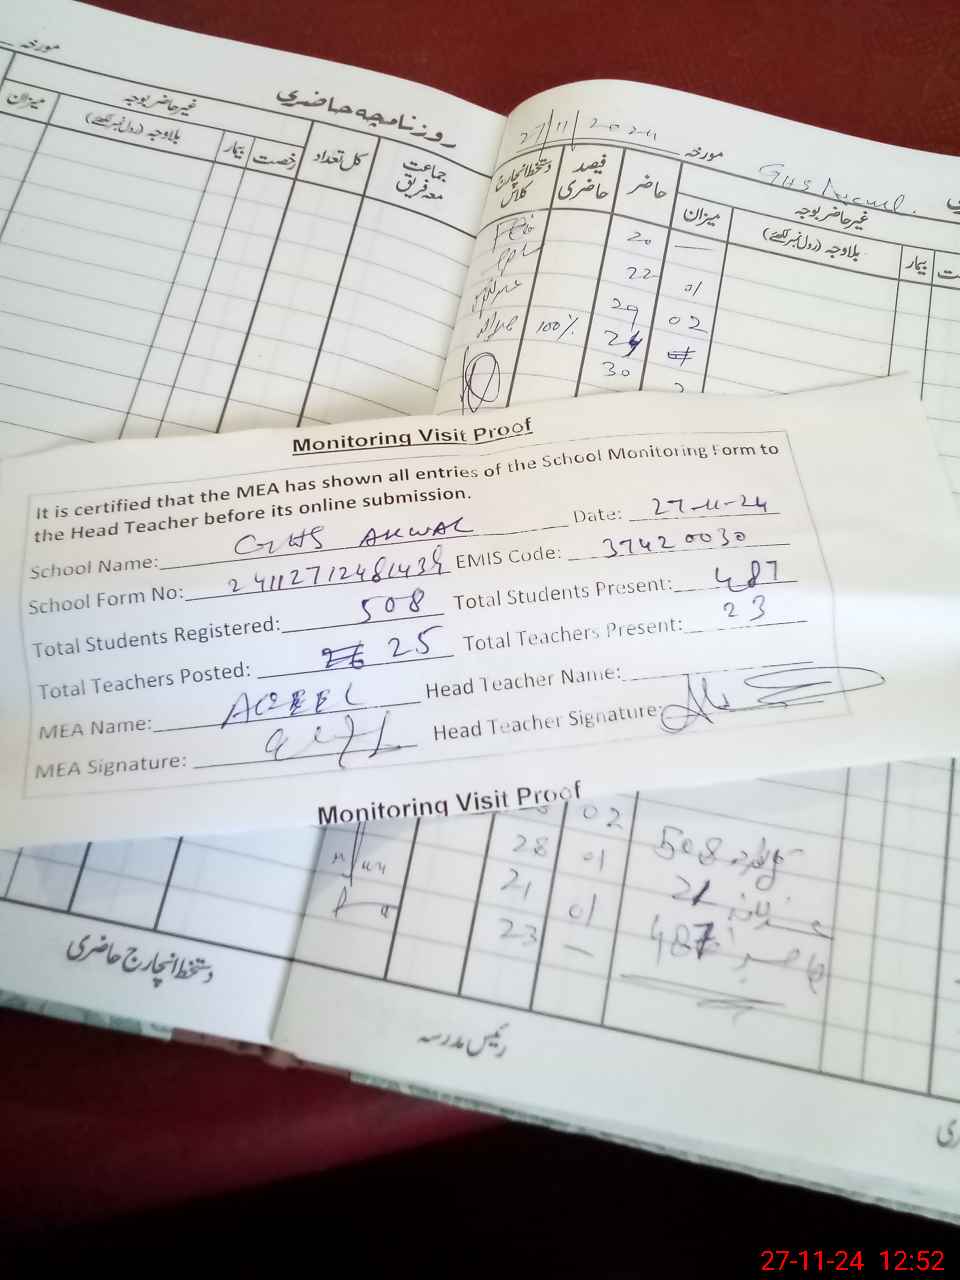 مورخہ
روزنامچہ حاضری
میزان
غیر حاضر بوجہ
بلاوجہ (رول نمبر لکھئے)
بیمار
رخصت
کل تعداد
جماعت معہ فریق
27/11/2024
مورخہ
GHS
دستخط انچارج کلاس
فیصد حاضری
حاضر
میزان
غیر حاضر بوجہ
بلاوجہ (رول نمبر لکھئے)
بیمار
20 —
22 01
29 02
100%
30
Monitoring Visit Proof
It is certified that the MEA has shown all entries of the School Monitoring Form to
the Head Teacher before its online submission.
School Name: GHS AKWAL Date: 27-11-24
School Form No: EMIS Code: 37420030
Total Students Registered: 508 Total Students Present: 487
Total Teachers Posted: 25 Total Teachers Present: 23
MEA Name: AQEEL Head Teacher Name:
MEA Signature: Head Teacher Signature:
Monitoring Visit Proof
02
28 01 508
21 01 21
23 — 487
دستخط انچارج حاضری
رئیس مدرسہ
27-11-24 12:52